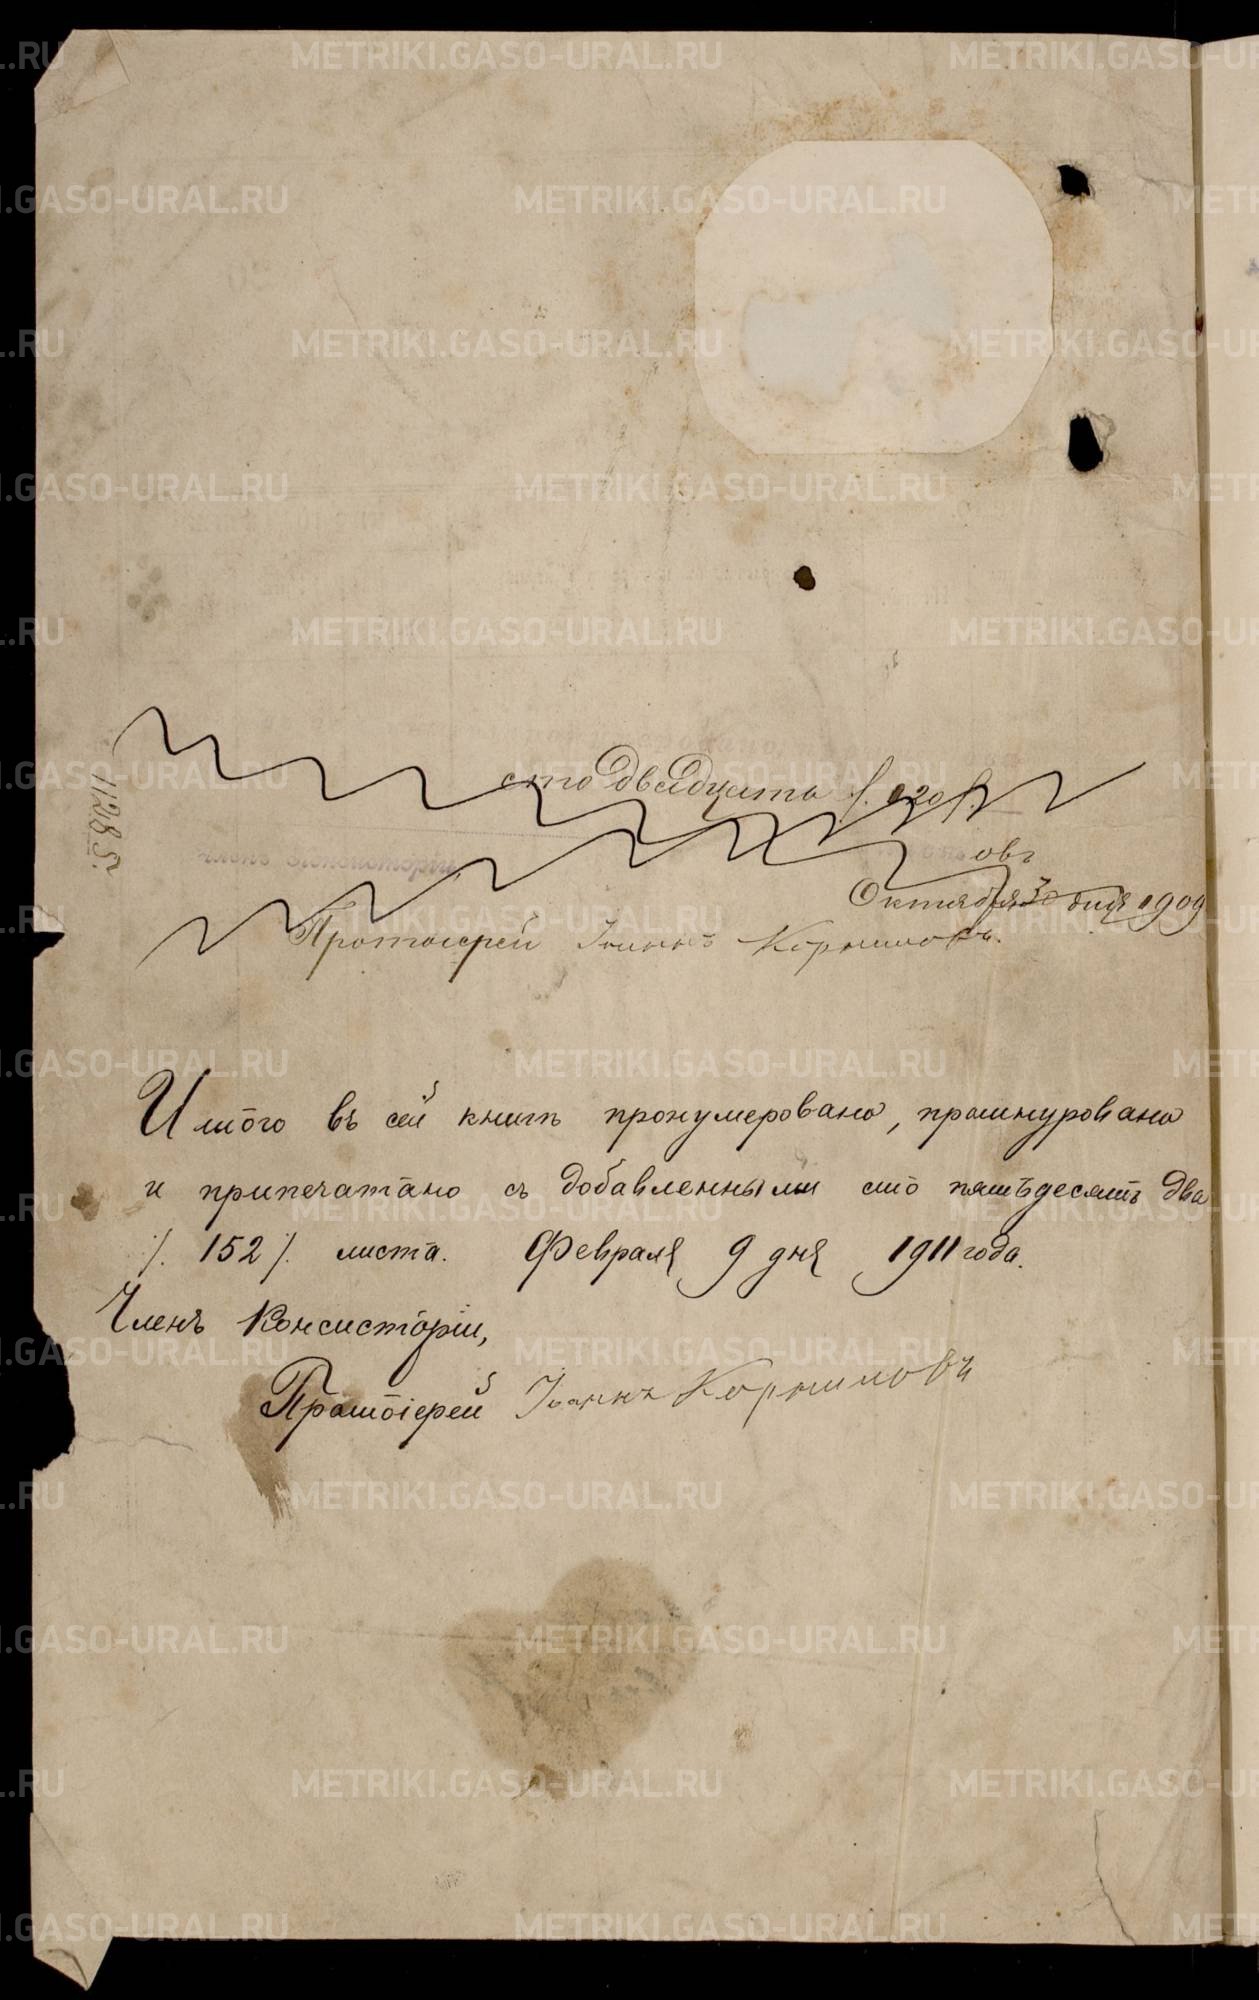 сто двадцать /. 120 /.
овъ
Октября 30 дня 1909
Протоіерей Іоаннъ Корниловъ.
11285.
Итого въ сей книгѣ пронумеровано, прошнуровано
и припечатано съ добавленными сто пятьдесятъ два
/. 152 /. листа. Февраля 9 дня 1911 года.
Членъ Консисторіи,
Протоіерей Іоаннъ Корниловъ
METRIKI.GASO-URAL.RU